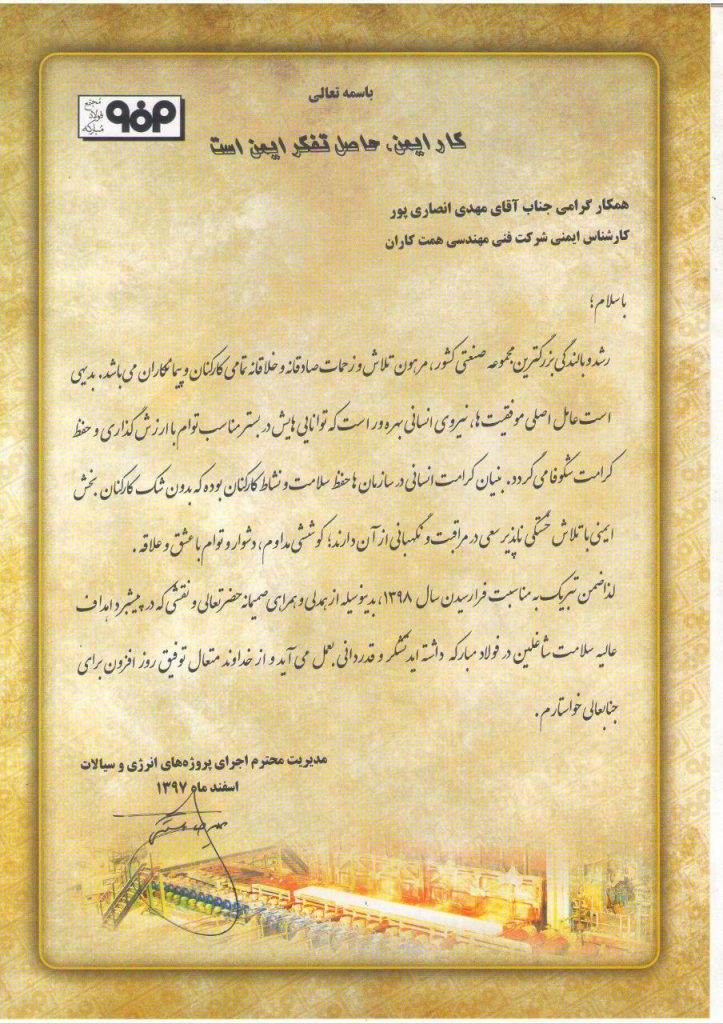 باسمه تعالی
مجتمع
فولاد
مبارکه
کار ایمن، حاصل تفکر ایمن است
همکار گرامی جناب آقای مهدی انصاری پور
کارشناس ایمنی شرکت فنی مهندسی همت کاران
باسلام؛
رشد و بالندگی بزرگترین مجموعه صنعتی کشور، مرهون تلاش و زحمات صادقانه و خلاقانه تمامی کارکنان و پیمانکاران می باشد. بدیهی
است عامل اصلی موفقیت ها، نیروی انسانی بهره ور است که توانایی هایش در بستر مناسب توام با ارزش گذاری و حفظ
کرامت شکوفا می گردد. بنیان کرامت انسانی در سازمان ها حفظ سلامت و نشاط کارکنان بوده که بدون شک کارکنان بخش
ایمنی با تلاش خستگی ناپذیر سعی در مراقبت و نگهبانی از آن دارند؛ کوششی مداوم، دشوار و توام با عشق و علاقه.
لذا ضمن تبریک به مناسبت فرا رسیدن سال ۱۳۹۸، بدینوسیله از همدلی و همراهی صمیمانه حضرتعالی و نقشی که در پیشبرد اهداف
عالیه سلامت شاغلین در فولاد مبارکه داشته اید تشکر و قدردانی بعمل می آید و از خداوند متعال توفیق روز افزون برای
جنابعالی خواستارم.
مدیریت محترم اجرای پروژه‌های انرژی و سیالات
اسفند ماه ۱۳۹۷